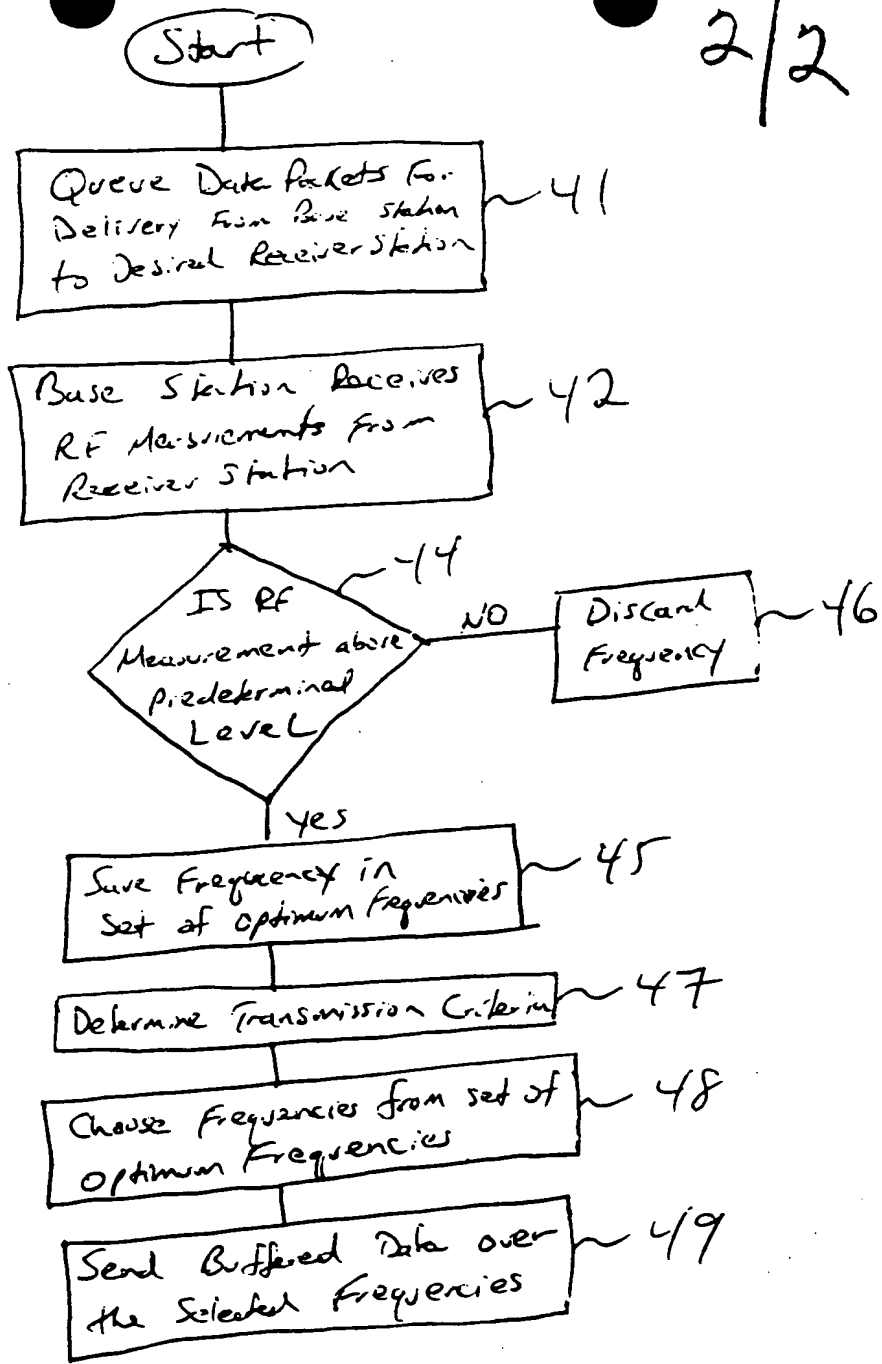 2/2
Start
Queue Data Packets For
Delivery From Base Station
to Desired Receiver Station
41
Base Station Receives
RF Measurements From
Receiver Station
42
IS RF
Measurement above
Predetermined
Level
44
NO
Discard
Frequency
46
yes
Save Frequency in
Set of Optimum Frequencies
45
Determine Transmission Criteria
47
Choose Frequencies from set of
Optimum Frequencies
48
Send Buffered Data over
the Selected Frequencies
49